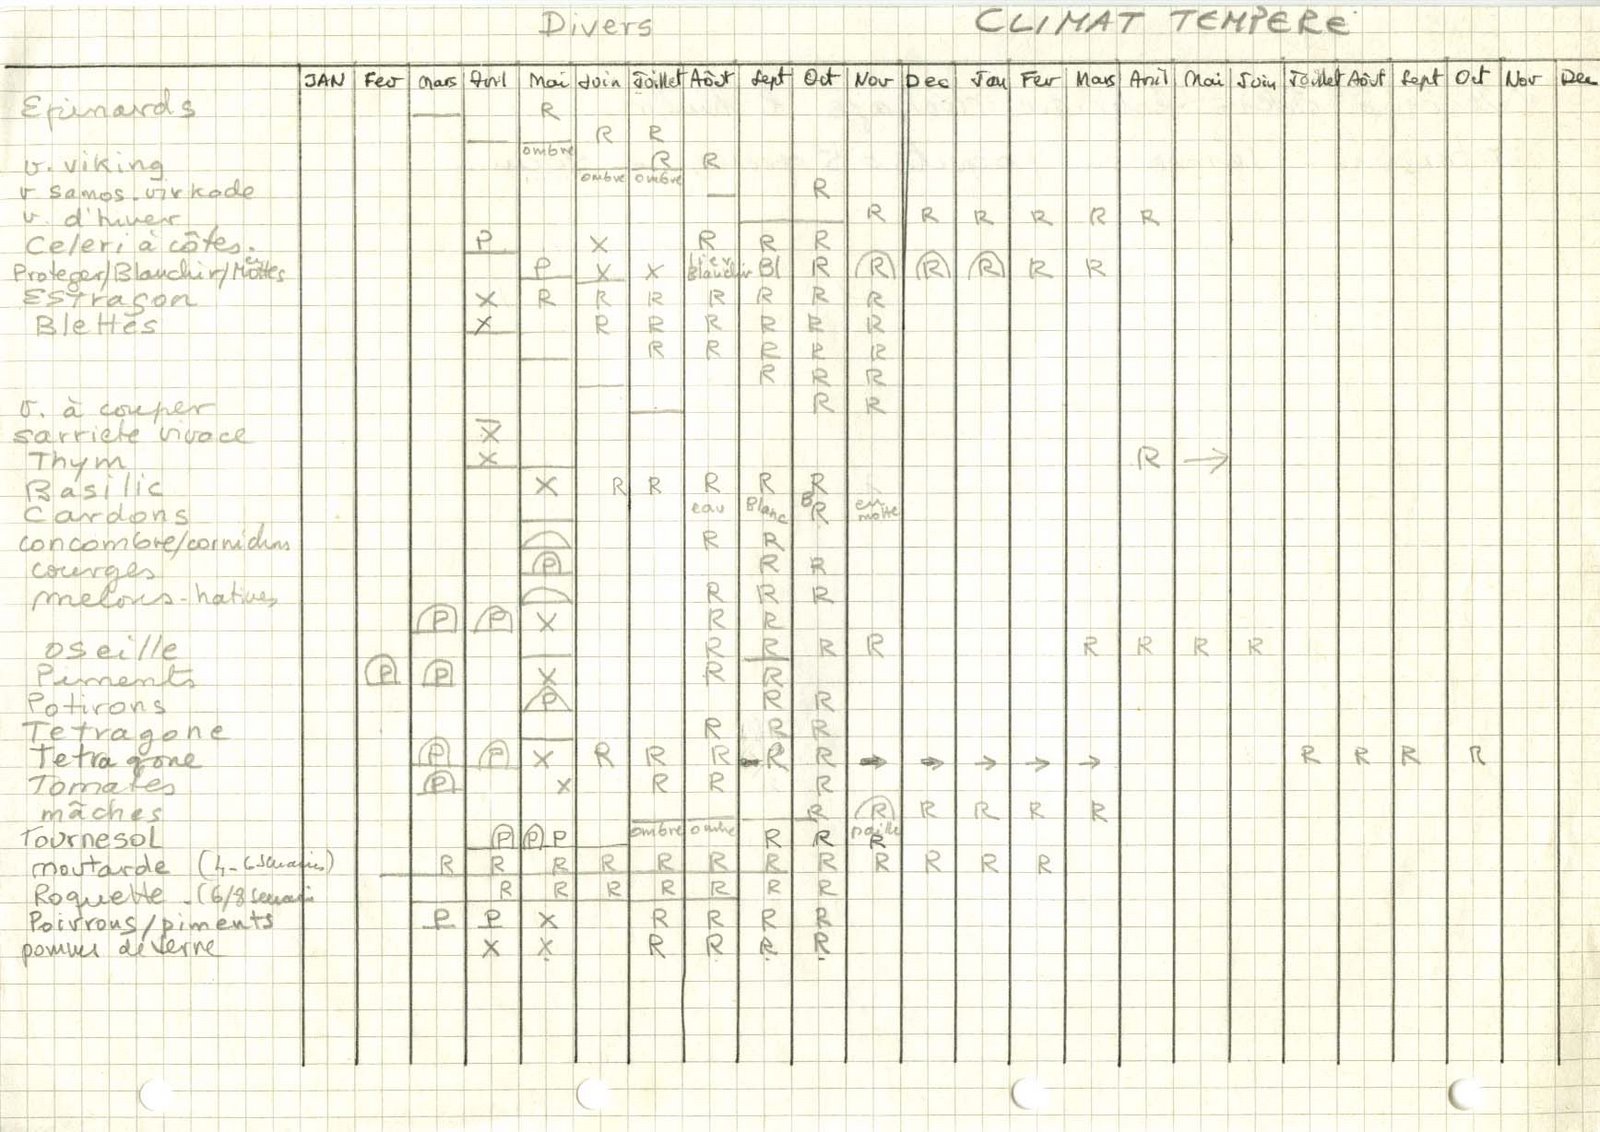 Divers CLIMAT TEMPERE
JAN Fev Mars Avril Mai Juin Juillet Aôut Sept Oct Nov Dec Jan Fev Mars Avril Mai Juin Juillet Aôut Sept Oct Nov Dec
Epinards R
R R
ombre
v. viking R R
ombre ombre
v samos. virkade R
v. d'hiver R R R R R R
Celeri à côtes. P X R R R
Proteger/Blanchir/Mottes P X X Lier Blanchir Bl R R R R R R
Estragon X R R R R R R R
Blettes X R R R R R R
R R R R R
R R R
v. à couper R R
sarriete vivace X
Thym X R →
Basilic X R R R R R
Cardons eau Blanc B R en motte
concombre/cornichons R R
courges P R R
melons-hatives R R R
P P X R R
oseille R R R R R R R R
Piments P P X R R
Potirons P R R
Tetragone R R R
Tetragone P P X R R R R R → → → → → R R R R
Tomates P X R R R
mâches R R R R R R
ombre ombre paille
Tournesol P P P R R R
moutarde (4-6 semaines) R R R R R R R R R R R R
Roquette - (6/8 semain R R R R R R R
Poivrons/piments P P X R R R R
pommes de terre X X R R R R